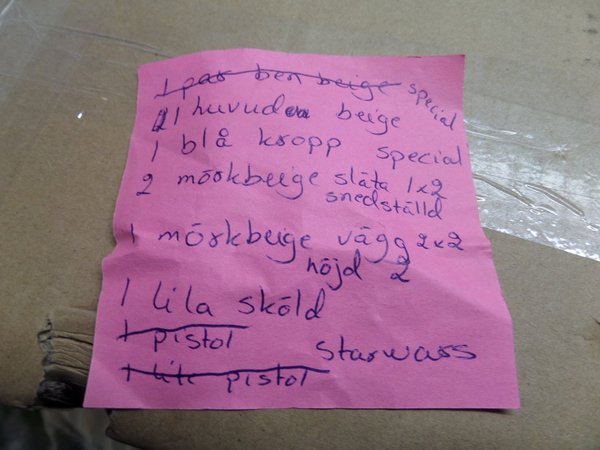 1 par ben beige special
1 huvud beige
1 blå kropp special
2 mörkbeige släta 1x2
snedställd
1 mörkbeige vägg 2x2
höjd 2
1 lila sköld
1 pistol
starwars
1 liten pistol